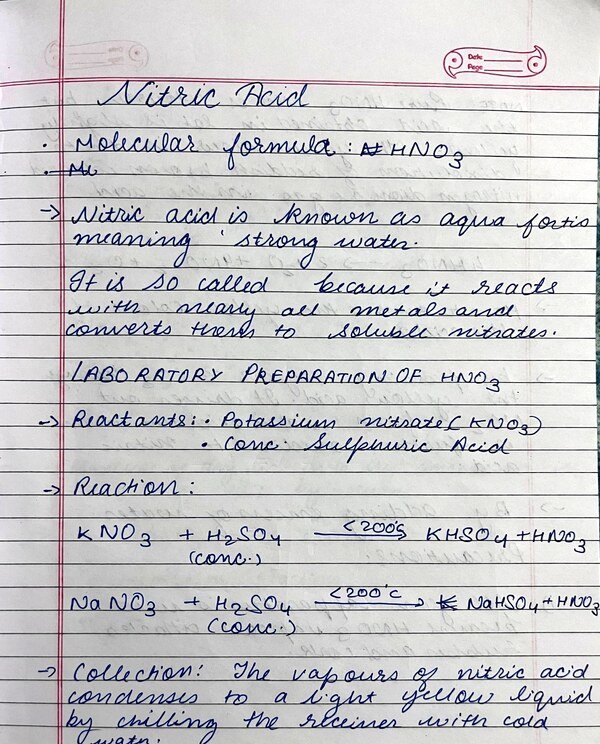 Date
Page
Nitric Acid
· Molecular formula : HNO3
→ Nitric acid is known as aqua fortis
meaning 'strong water.
It is so called because it reacts
with nearly all metals and
converts them to soluble nitrates.
LABORATORY PREPARATION OF HNO3
→ Reactants: · Potassium nitrate (KNO3)
· Conc. Sulphuric Acid
→ Reaction :
KNO3 + H2SO4 <200°C → KHSO4 + HNO3
(conc.)
NaNO3 + H2SO4 <200°C → NaHSO4 + HNO3
(conc.)
→ Collection: The vapours of nitric acid
condenses to a light yellow liquid
by chilling the receiver with cold
water.